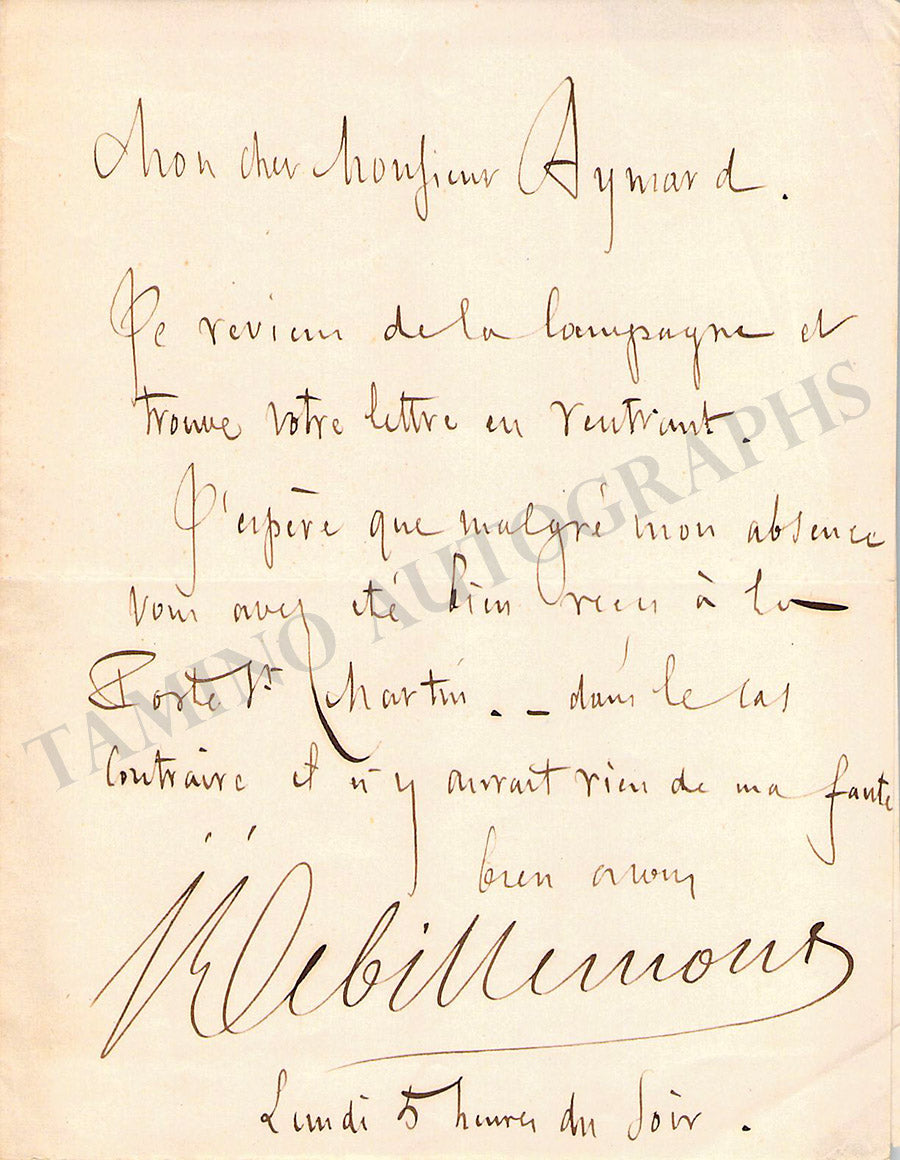 Mon cher Monsieur Aymard.
Je reviens de la Campagne et
trouve votre lettre en rentrant.
J'espère que malgré mon absence
vous avez été bien reçu à la
Porte St Martin. – dans le cas
Contraire il n'y aurait rien de ma faute
bien à vous
JJ Debillemont
Lundi 5 heures du Soir.
TAMINO AUTOGRAPHS